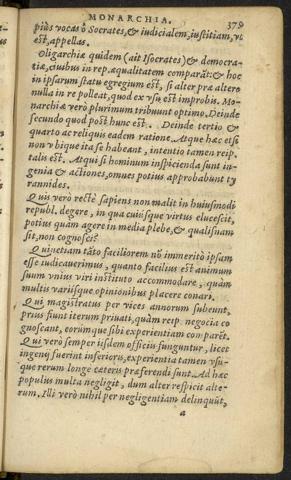 MONARCHIA. 379
piùs vocas ô Socrates, & iudicialem, iustitiam, vt
est, appellas.
Oligarchiæ quidem (ait Isocrates) & democra-
tiæ, ciuibus in rep. æqualitatem comparāt: & hoc
in ipsarum statu egregium est, si alter præ altero
nulla in re polleat, quod ex vsu est improbis. Mo-
narchiæ verò plurimum tribuunt optimo. Deinde
secundo quod post hunc est. Deinde tertio &
quarto ac reliquis eadem ratione. Atque hæc etsi
non vbique ita se habeant, intentio tamen reip.
talis est. Atqui si hominum inspicienda sunt in-
genia & actiones, omnes potius approbabunt ty
rannides.
Quis verò rectè sapiens non malit in huiusmodi
republ. degere, in qua cuiusque virtus elucescit,
potius quàm agere in media plebe, & qualisnam
sit, non cognosci?
Quinetiam tāto faciliorem nū immeritò ipsam
esse iudicauerimus, quanto facilius est animum
suum vnius viri instituto accommodare, quàm
multis variisque opinionibus placere conari.
Qui magistratus per vices annorum subeunt,
prius fiunt iterum priuati, quàm reip. negocia co
gnoscant, eorúmque sibi experientiam comparēt.
Qui verò semper iisdem officiis funguntur, licet
ingenij fuerint inferioris, experientia tamen vsú-
que rerum longè cæteris præferendi sunt. Ad hæc
populus multa negligit, dum alter respicit alte-
rum. Illi verò nihil per negligentiam delinquūt,
a